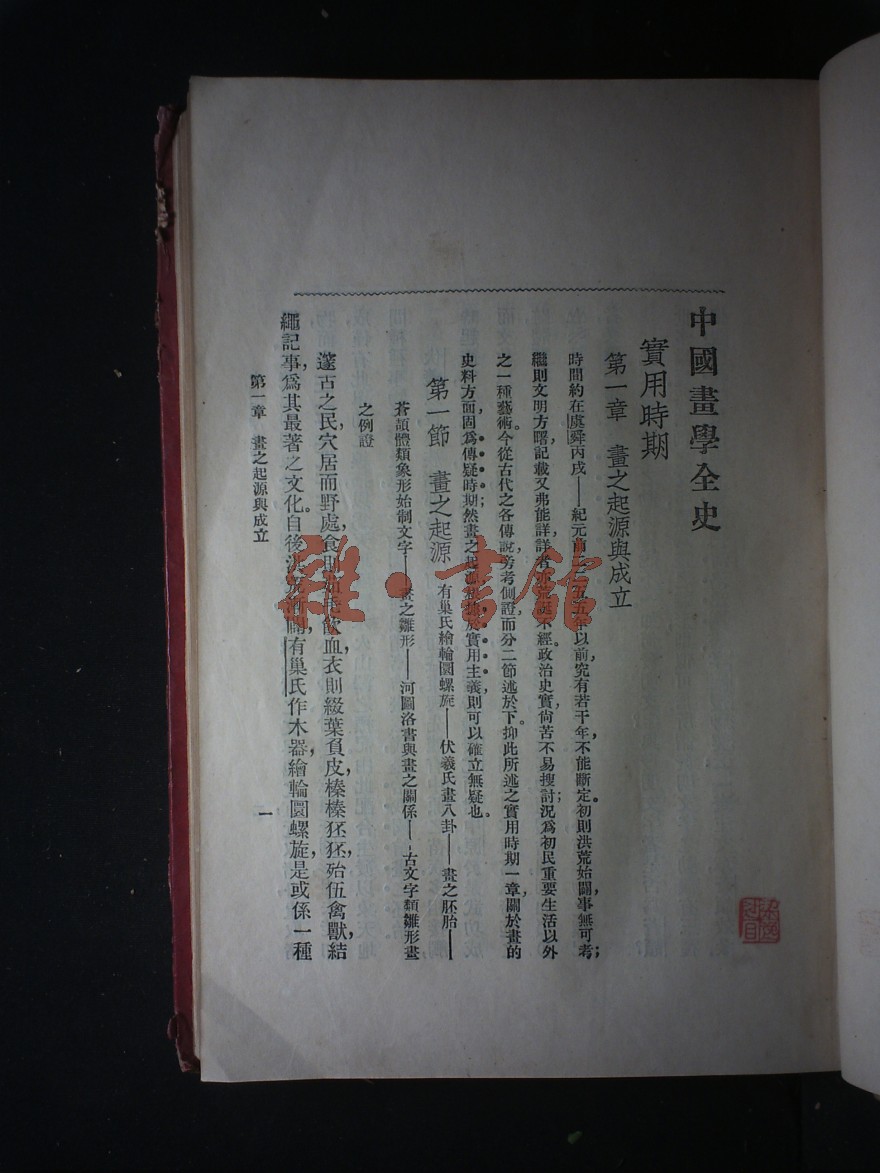 中國畫學全史
實用時期
第一章 畫之起源與成立
時間約在虞舜丙戌——紀元前二二五五年以前，究有若干年，不能斷定。初則洪荒始闢，事無可考；
繼則文明方曙，記載又弗能詳，詳者亦荒誕不經。政治史實，尙苦不易搜討；況爲初民重要生活以外
之一種藝術。今從古代之各傳說，旁考側證，而分二節述於下。抑此所述之實用時期一章，關於畫的
史料方面，固爲傳疑時期；然畫之起源
於實用主義，則可以確立無疑也。
第一節 畫之起源
有巢氏繪輪圜螺旋——伏羲氏畫八卦——畫之胚胎——
蒼頡體類象形始制文字——畫之雛形——河圖洛書與畫之關係——古文字類雛形畫
之例證
邃古之民，穴居而野處，食則茹毛飲血，衣則綴葉負皮，榛榛狉狉，殆伍禽獸，結
繩記事，爲其最著之文化。自後洪荒漸闢，有巢氏作木器，繪輪圜螺旋，是或係一種
第一章 畫之起源與成立
一
雜·書館